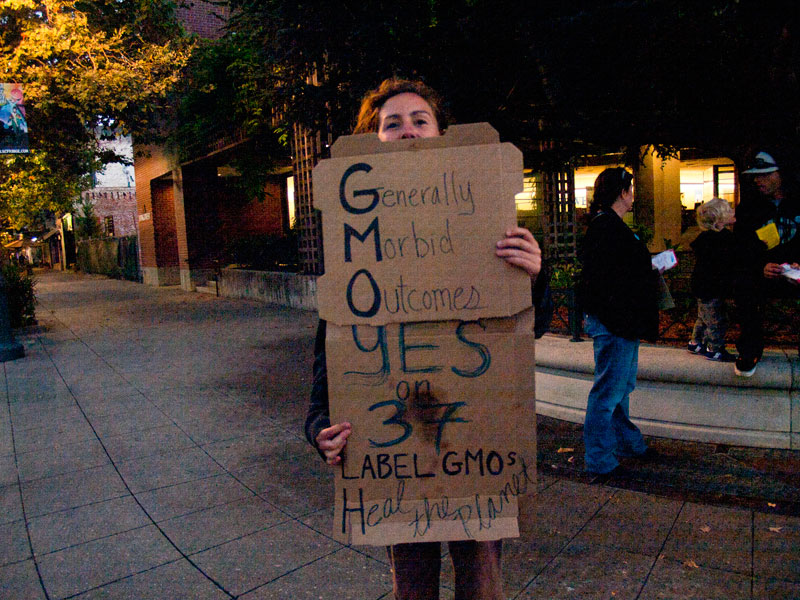 Generally
Morbid
Outcomes
YES
on
37
LABEL GMOs
Heal the planet